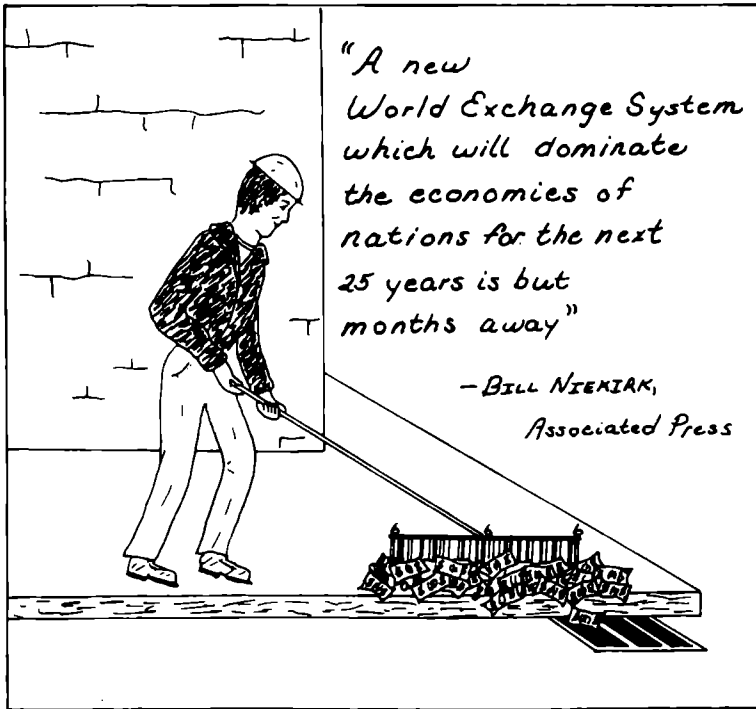 "A new
World Exchange System
which will dominate
the economies of
nations for the next
25 years is but
months away"
- BILL NIEKIRK,
Associated Press
6 6 6